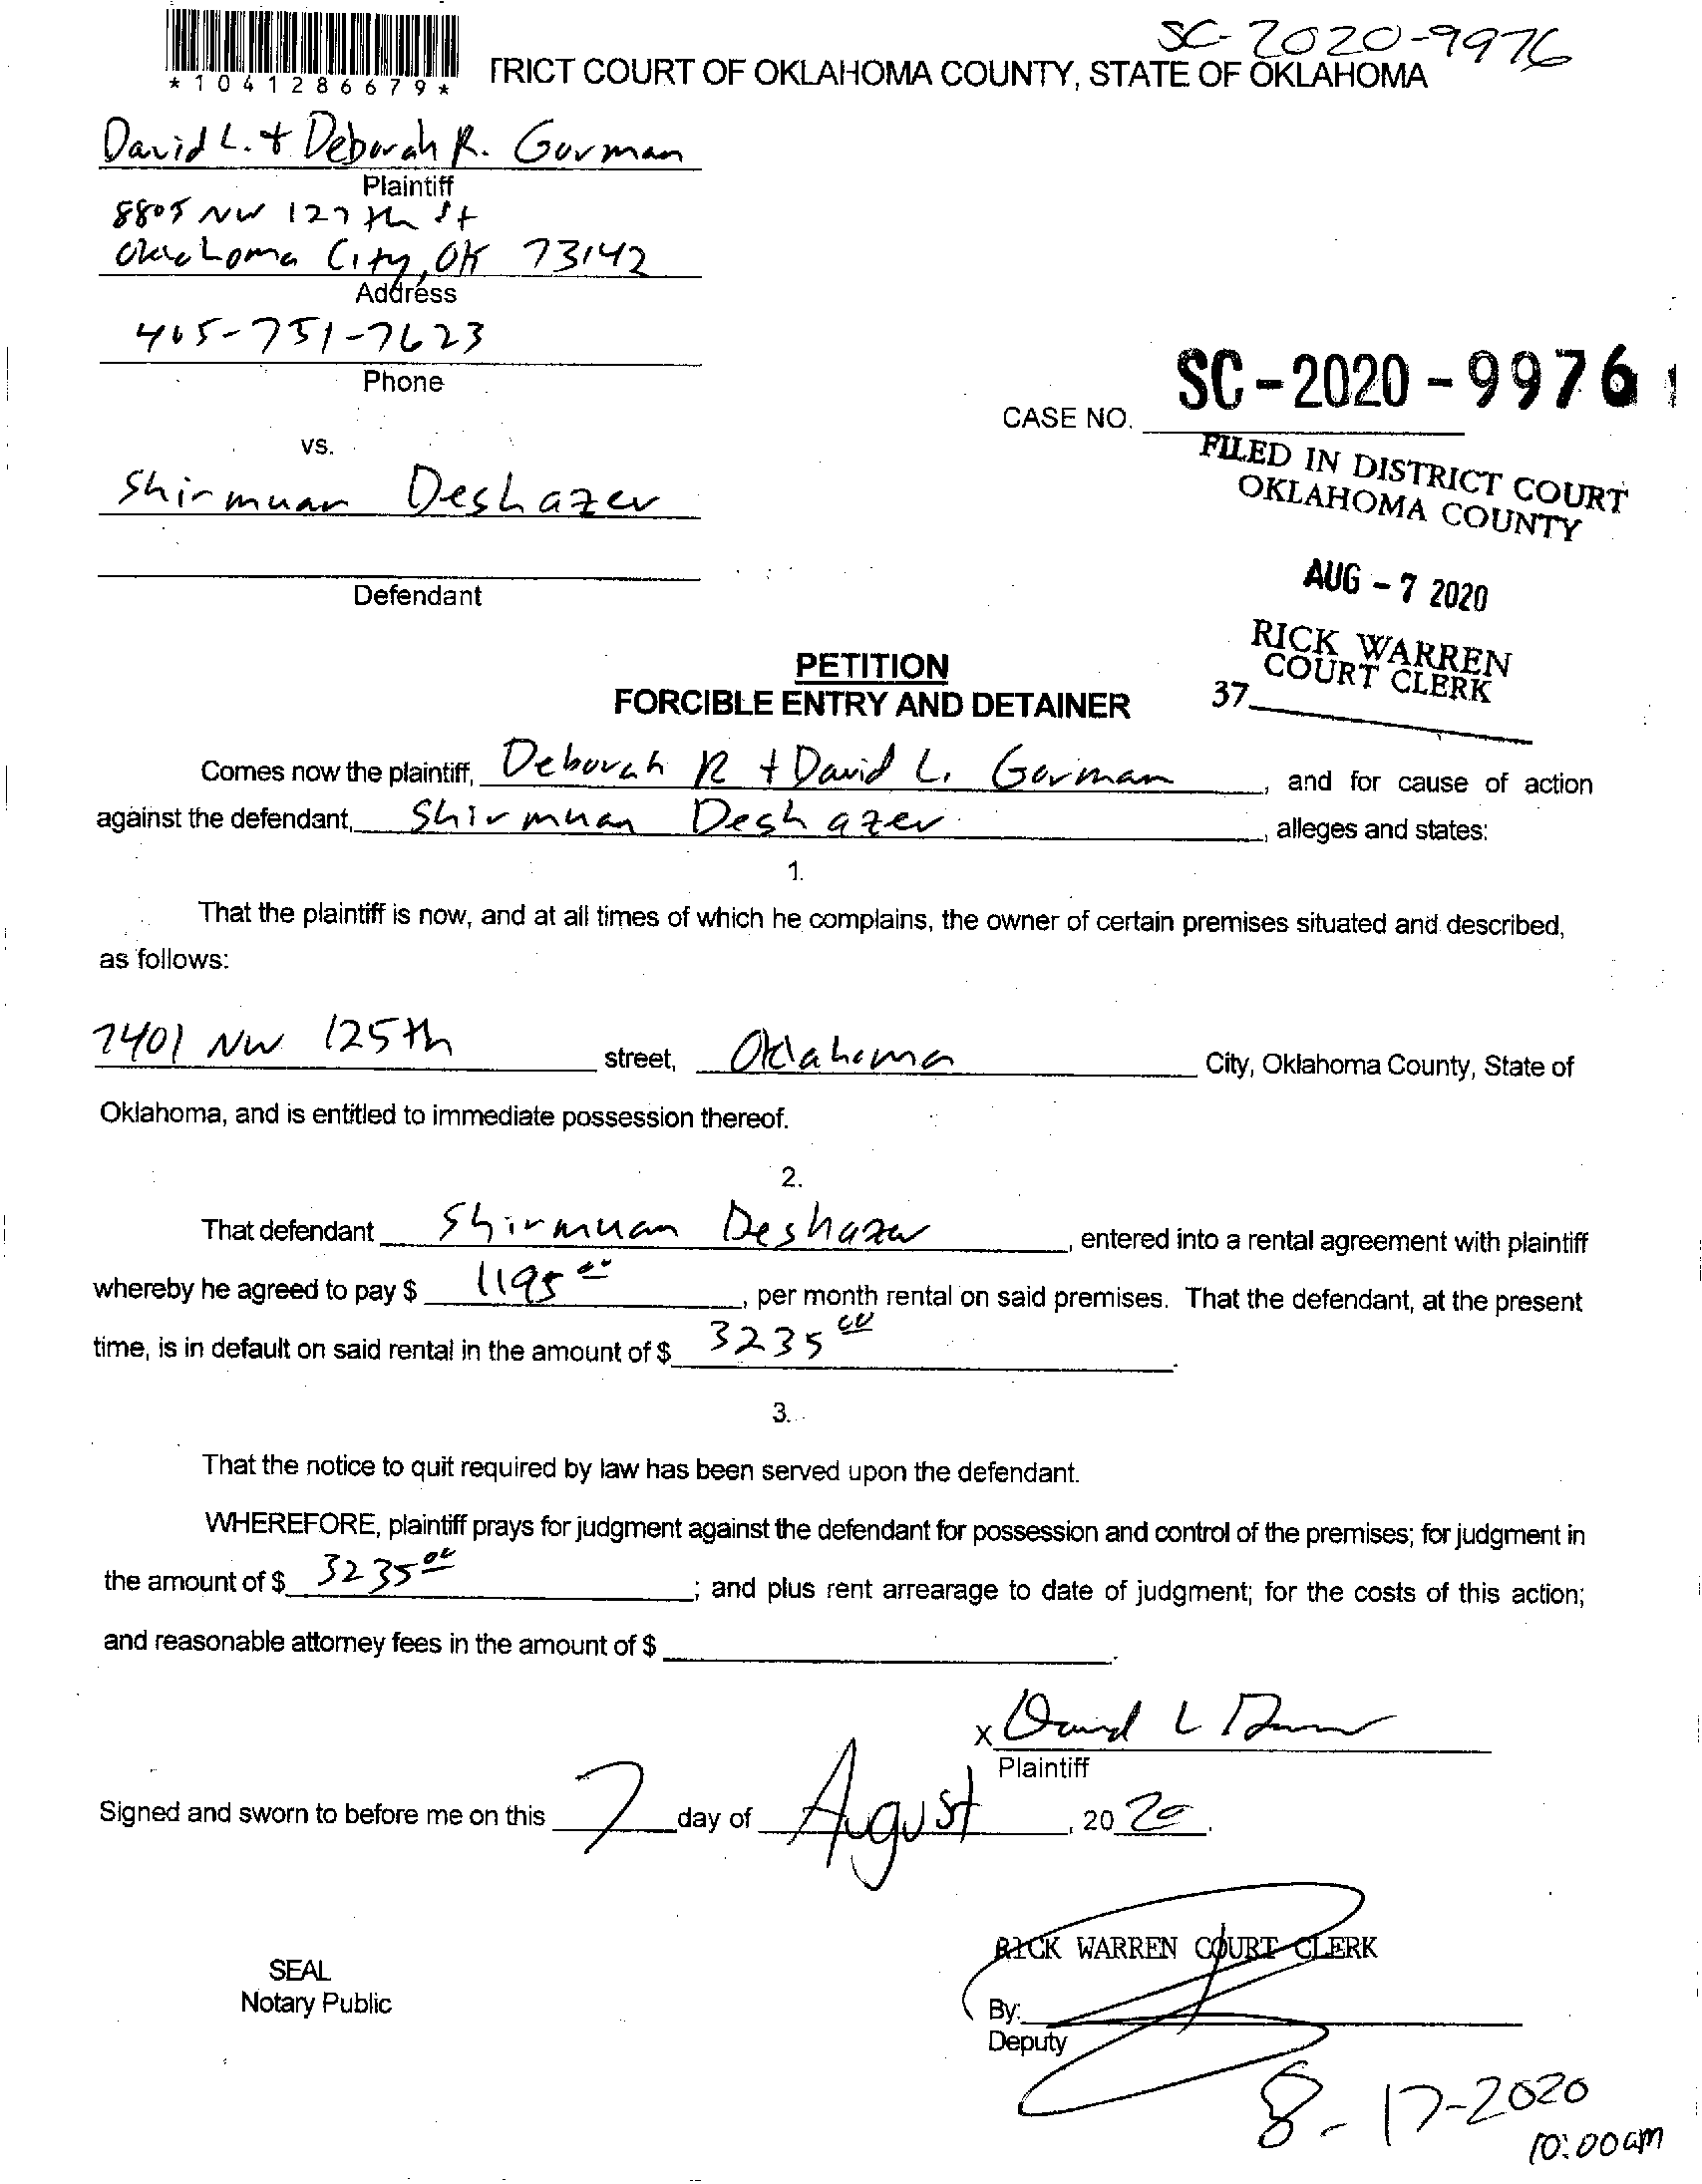 SC-2020-9976
*1041286679*
TRICT COURT OF OKLAHOMA COUNTY, STATE OF OKLAHOMA
David L. + Deborah R. Gorman
Plaintiff
8805 NW 127th St
Oklahoma City, OK 73142
Address
405-751-7623
Phone
SC-2020-9976
CASE NO.
vs.
FILED IN DISTRICT COURT
OKLAHOMA COUNTY
Shirmuan Deshazer
AUG - 7 2020
Defendant
RICK WARREN
COURT CLERK
37
PETITION
FORCIBLE ENTRY AND DETAINER
Comes now the plaintiff, Deborah R + David L. Gorman, and for cause of action
against the defendant, Shirmuan Deshazer, alleges and states:
1.
That the plaintiff is now, and at all times of which he complains, the owner of certain premises situated and described,
as follows:
7401 NW 125th street, Oklahoma City, Oklahoma County, State of
Oklahoma, and is entitled to immediate possession thereof.
2.
That defendant Shirmuan Deshazer, entered into a rental agreement with plaintiff
whereby he agreed to pay $ 1195 00, per month rental on said premises. That the defendant, at the present
time, is in default on said rental in the amount of $ 3235 00.
3.
That the notice to quit required by law has been served upon the defendant.
WHEREFORE, plaintiff prays for judgment against the defendant for possession and control of the premises; for judgment in
the amount of $ 3235 00; and plus rent arrearage to date of judgment; for the costs of this action;
and reasonable attorney fees in the amount of $ .
x David L
Plaintiff
Signed and sworn to before me on this 7 day of Agust, 2020.
RICK WARREN COURT CLERK
SEAL
Notary Public
By:
Deputy
8-17-2020
10:00am